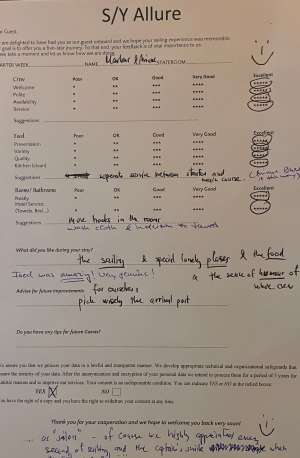 S/Y Allure
Guest,
are delighted to have had you as our guest onboard and we hope your sailing experience was memorable.
goal is to offer you a five-star journey. To that end, your feedback is of vital importance to us.
take a moment and let us know how we are doing.
WEEK NAME STATEROOM
Crew Poor OK Good Very Good Excellent
Welcome * ** *** **** *****
Polite * ** *** **** *****
Availability * ** *** **** *****
Service * ** *** **** *****
Suggestions
Food Poor OK Good Very Good Excellent
Presentation * ** *** **** *****
Variety * ** *** **** *****
Quality * ** *** **** *****
Kitchen * ** *** **** *****
Suggestions separate service between starter and
main course.
Rooms / Bathrooms Poor OK Good Very Good Excellent
Ready * ** *** **** *****
Hotel Service * ** *** **** *****
(Towels, Bed...) * ** *** **** *****
Suggestions More hooks in the rooms
wash cloth &
What did you like during your stay?
the sailing & special lonely places & the food
food was amazing! Very genuine! & the sense of humour of
whole crew
Advice for future improvements for ourselves:
pick wisely the arrival port
Do you have any tips for future Guests?
assure you that we process your data in a lawful and transparent manner. We develop appropriate technical and organizational safeguards that
the security of your data. After the anonymization and encryption of your personal data we intend to process them for a period of 3 years for
reasons and to improve our services. Your consent is an indispensable condition. You can indicate YES or NO in the related boxes:
YES X NO
have the right of a copy and you have the right to withdraw your consent at any time.
Thank you for your cooperation and we hope to welcome you back very soon!
- of course we highly appreciated every
second of sailing and the captain's smile when